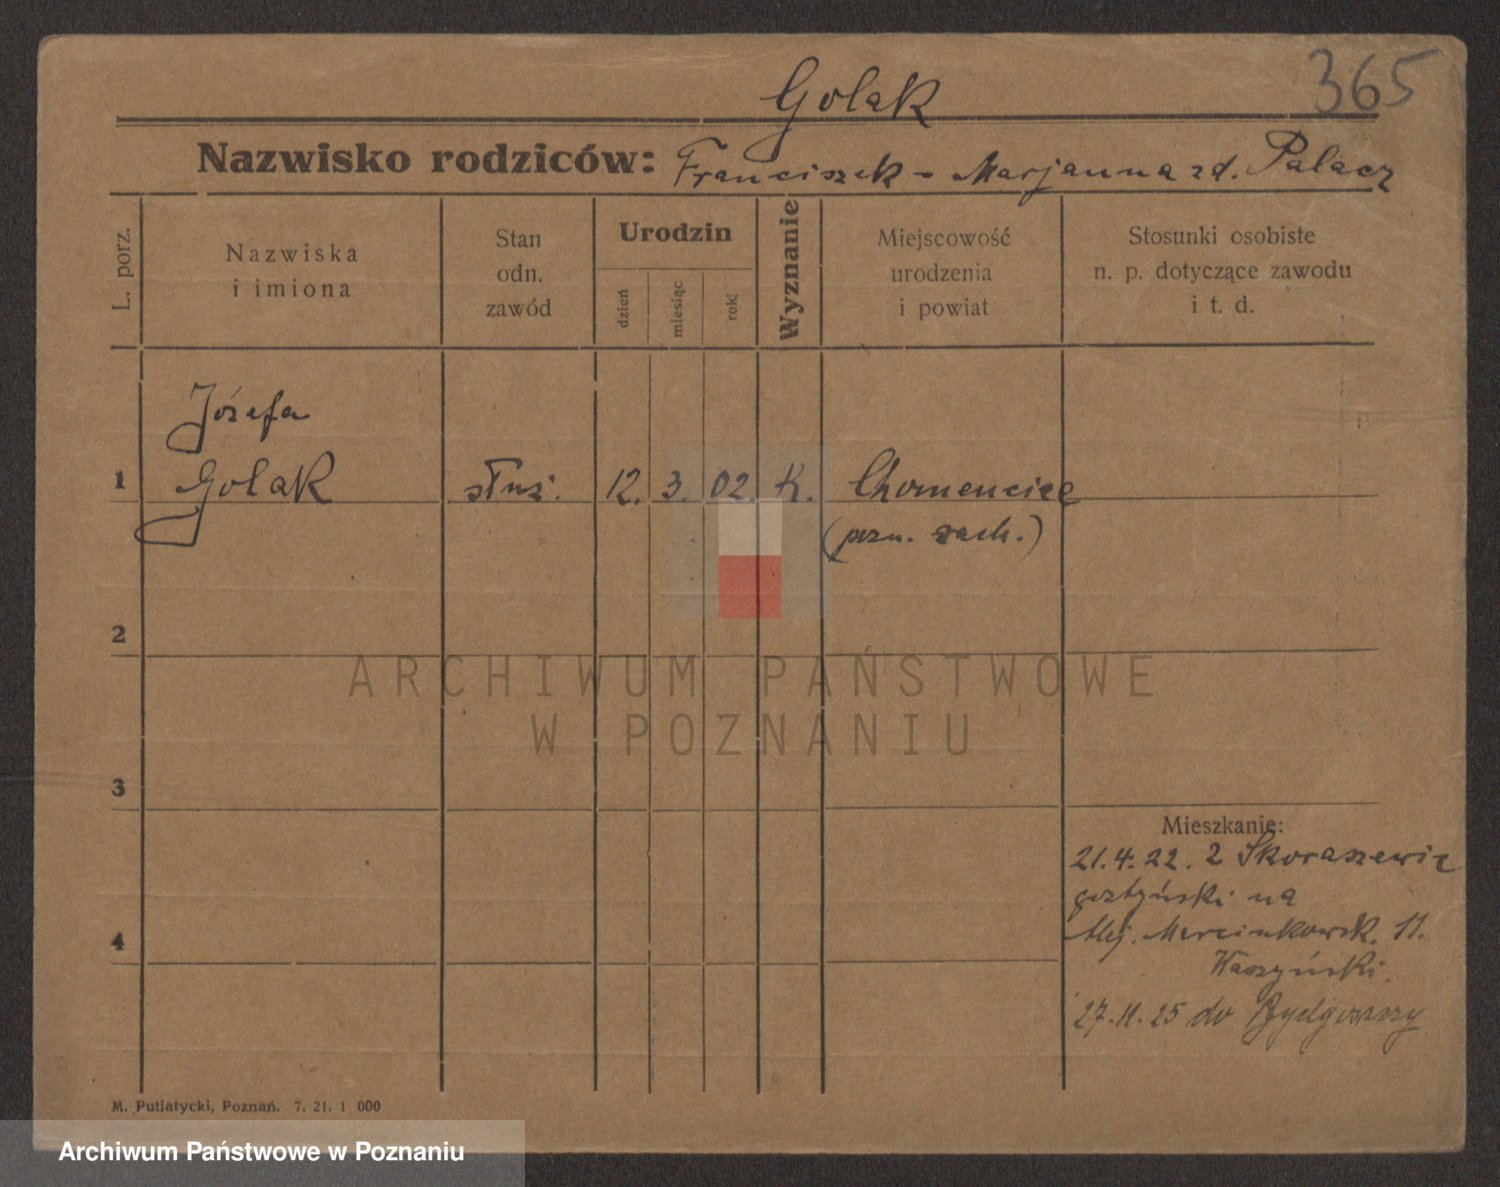 365
Golak
Nazwisko rodziców: Franciszek - Marjanna zd. Palacz
L. porz.
Nazwiska
i imiona
Stan
odn.
zawód
Urodzin
dzień
miesiąc
rok
Wyznanie
Miejscowość
urodzenia
i powiat
Stosunki osobiste
n. p. dotyczące zawodu
i t. d.
Józefa
1 Golak służ. 12. 3. 02. K. Chomencice
(pozn. zach.)
2
3
4
Mieszkanie:
21.4.22. z Skoraszewic
gostyński na
Alej. Marcinkowsk. 11.
27.11.25 do Bydgoszczy
M. Putiatycki, Poznań. 7. 21. 1 000
ARCHIWUM PAŃSTWOWE
W POZNANIU
Archiwum Państwowe w Poznaniu